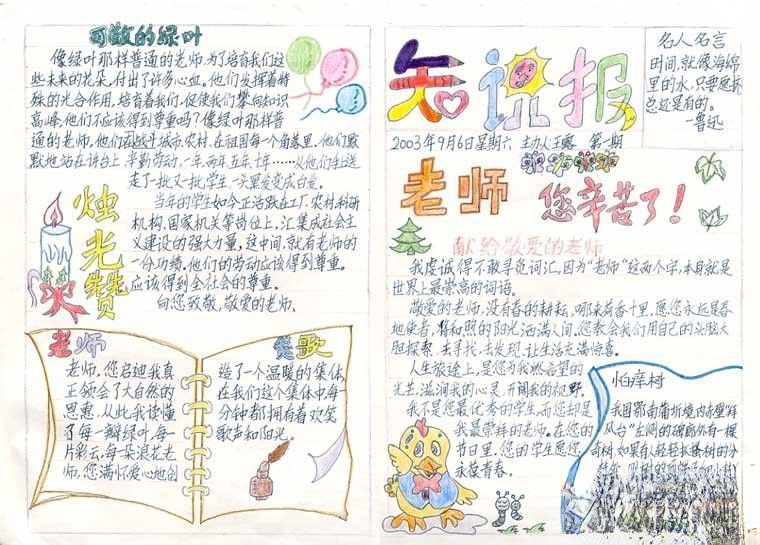 可敬的绿叶
像绿叶那样普通的老师,为了培育我们这
些未来的花朵,付出了许多心血。他们发挥着特
殊的光合作用,培育着我们,促使我们攀向知识
高峰,他们不应该得到尊重吗?像绿叶那样普
通的老师,他们城市、农村,在祖国每一个角落里。他们默
默地站在讲台上,辛勤劳动,一年、两年、五年、十年……从他们手上送
走了一批又一批学生,一头黑发变成白发。
当年的学生如今正活跃在工厂、农村、科研
机构、国家机关等岗位上,汇集成社会主
义建设的强大力量,这中间,就有老师的
一份功绩。他们的劳动应该得到尊重。
应该得到全社会的尊重。
向您致敬,敬爱的老师。
烛光赞
老师
老师,您启迪我真
正领会了大自然的
恩惠,从此我读懂
了每一瓣绿叶,每一
片彩云,每朵浪花老
师,您满怀爱心地创
赞歌
造了一个温暖的集体,
在我们这个集体中每一
分钟都拥有着欢笑
歌声和阳光。
知识报
名人名言
时间,就像海绵
里的水,只要愿挤,
总还是有的。
—鲁迅
2003年9月6日星期六 主办人:王露 第一期
老师 您辛苦了!
献给敬爱的老师
我虔诚得不敢寻觅词汇,因为“老师”这两个字,本身就是
世界上最崇高的词语。
敬爱的老师,没有春的耕耘,哪来荷香十里,愿您永远是春
地使者,将和照的阳光洒满人间。您教会我们用自己的头脑大
胆探索,去寻找,去发现,让生活充满惊喜。
人生旅途上,是您为我燃希望的
光芒,滋润我的心灵,开阔我的视野。
我不是您最优秀的学生,而您却是
我最崇拜的老师。在您的
节日里,您的学生愿您
永葆青春。
怕痒树
我国鄂南蒲圻境内赤壁“拜
风台”左侧的碑廊外有一棵
奇树,如果有人轻轻地搔树的